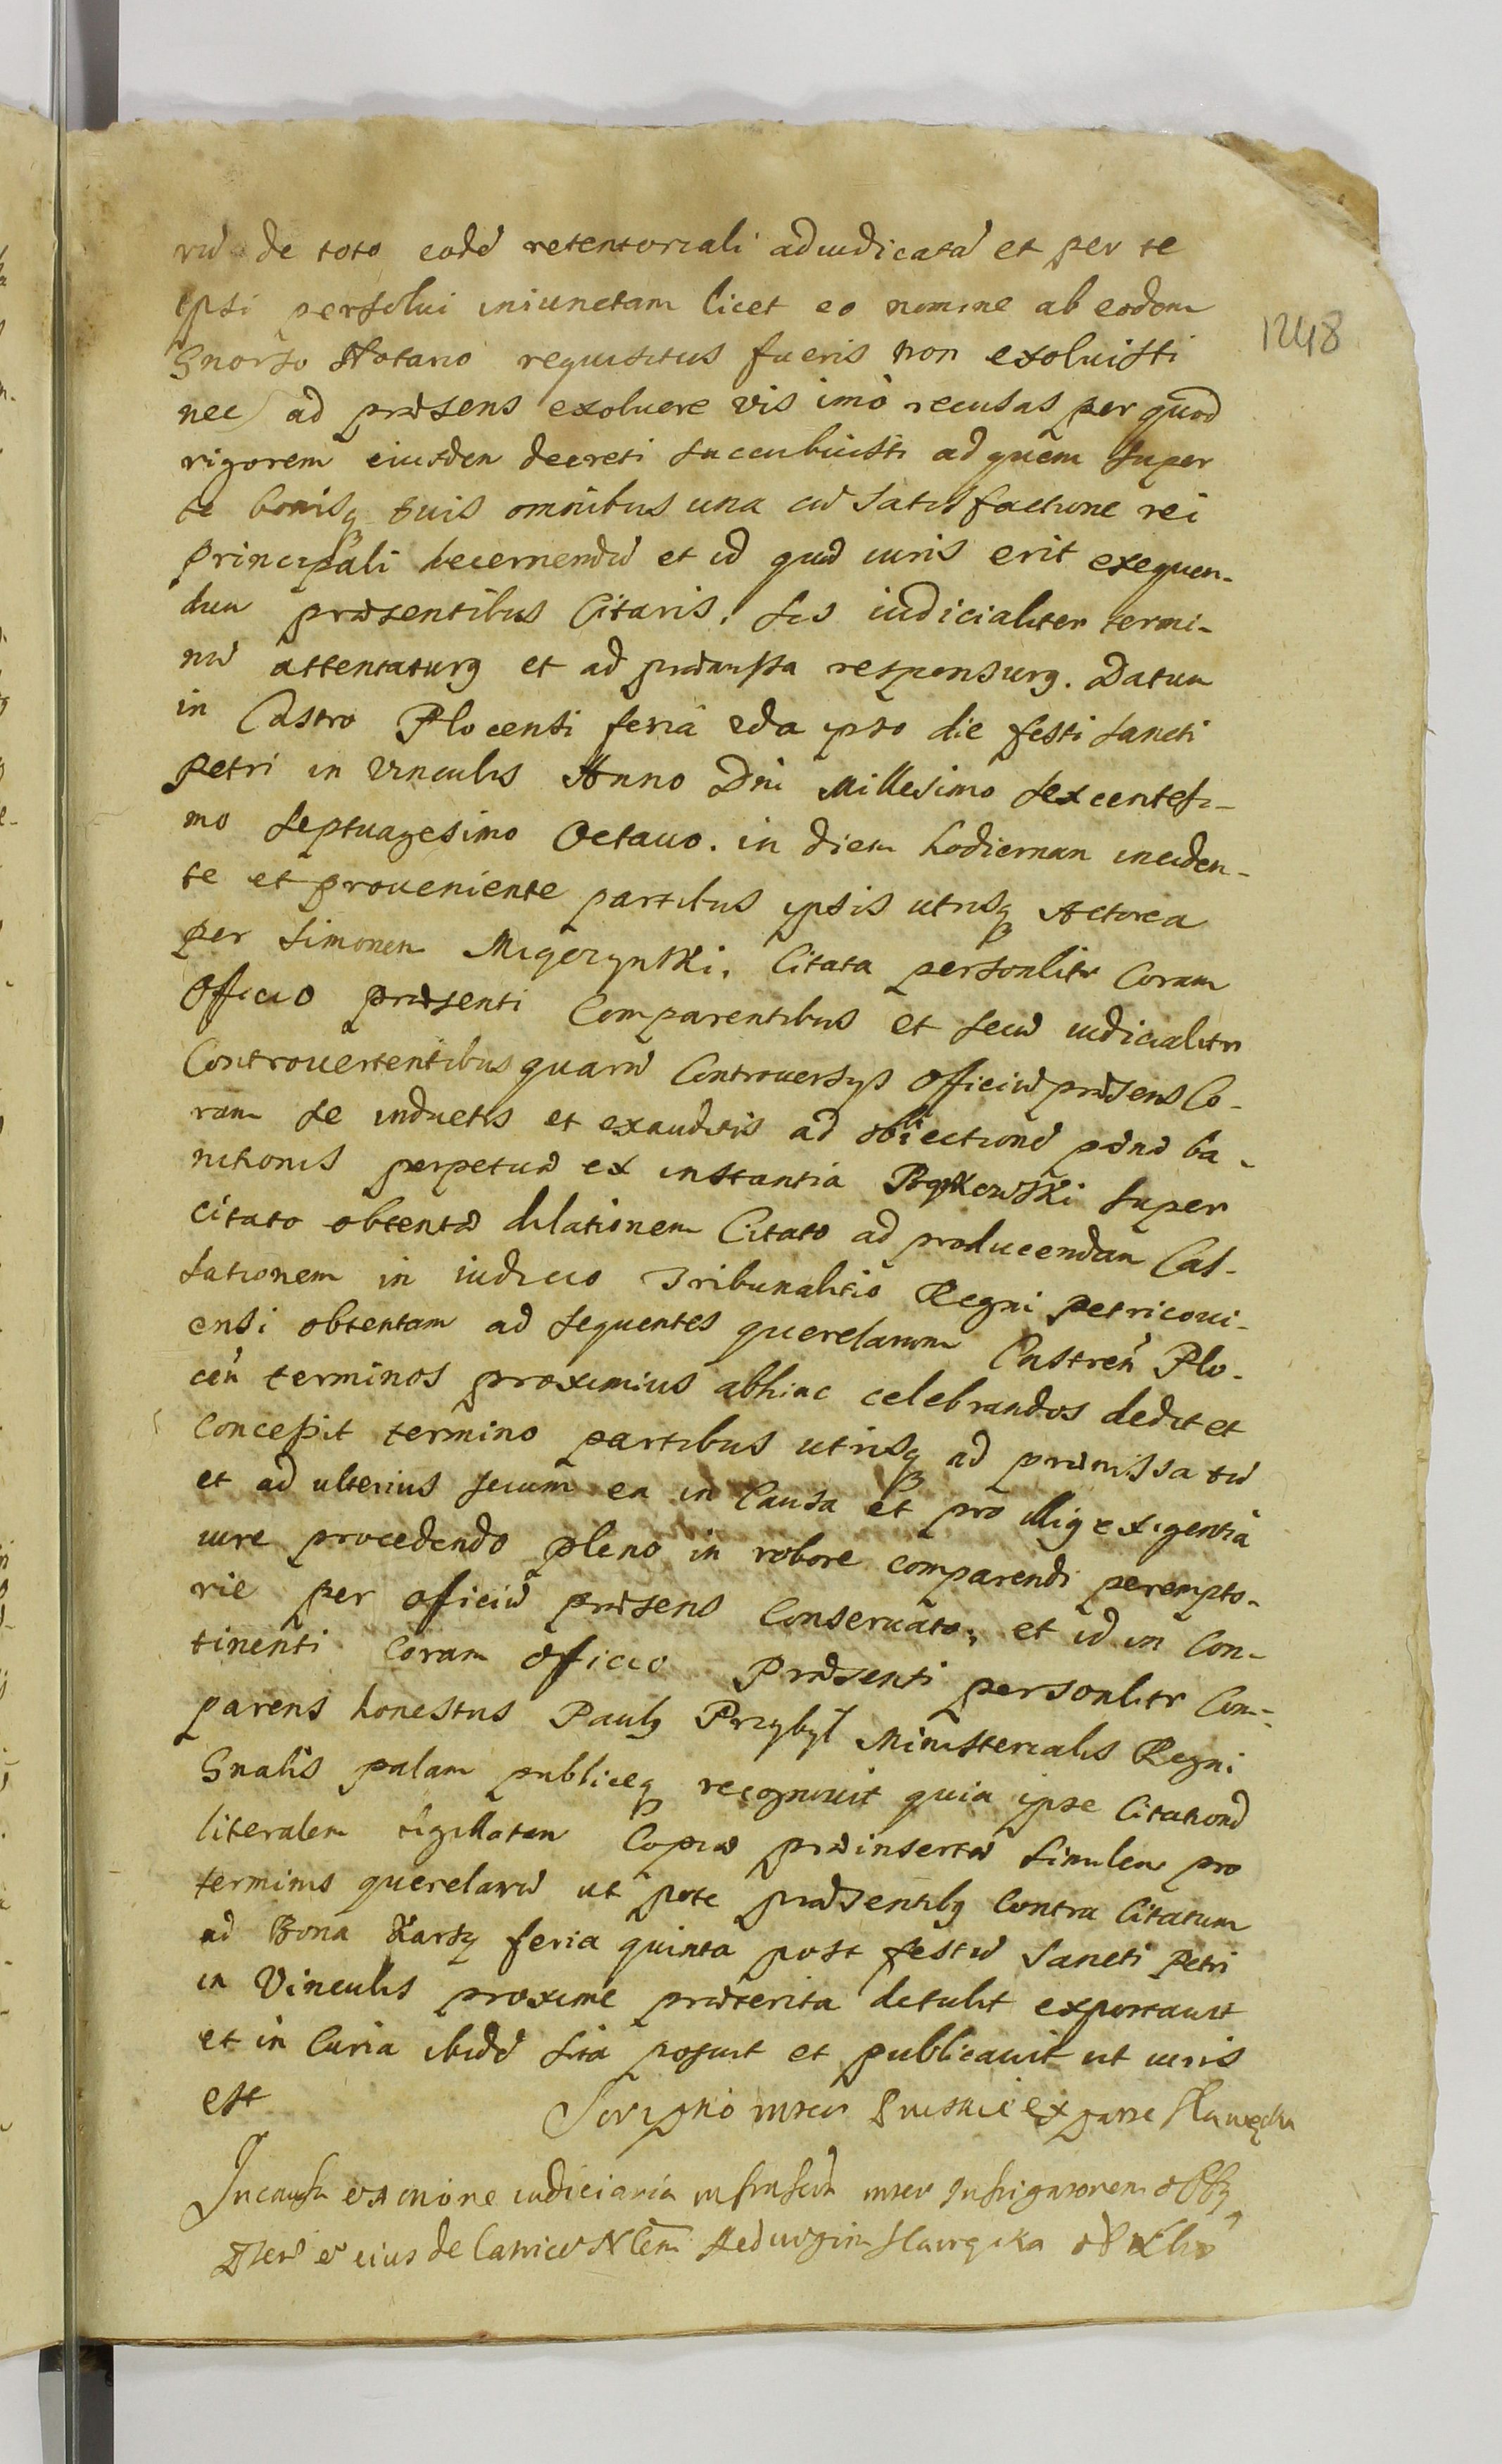 de toto eode retentoriali adiudicata et per te
ipsi persolui iniunctam licet eo nomine ab eodem
Gnorso Notario requisitus fueris non exoluisti
1248
nec ad præsens exoluere vis imò recusas per quod
rigorem eiusdem decreti succubuisti ad quem super
te bonisq tuis omnibus una cu satisfactione rei
principali decernendu et id quod iuris erit exequen-
dum præsentibus Citaris. sis iudicialiter termi-
nu attentaturg et ad præmissa responsurg. Datum
in Castro Plocensi feria 2da ipso die festi sancti
Petri in Vinculis Anno Dni Millesimo sexcentesi-
mo septuagesimo Octauo. in diem hodiernam inciden-
te et proueniente partibus ipsis utrisq Actorea
per Simonem Citata personlitr Coram
Officio præsenti Comparentibus et secu iudicialitr
Controuertentibus quaru Controuersys Officiu præsens Co-
ram se inductis et exauditis ad obiectione pænæ ba-
nitionis perpetuæ ex instantia super
citato obtentæ dilationem Citato ad producendam Cas-
sationem in iudicio Tribunalitio Regni Petricoui-
ensi obtentam ad sequentes querelarum Castren Plo-
cen terminos proximius abhinc celebrandos dedit et
concessit termino partibus utrisq ad præmissa tu
et ad ulterius secum ea in Causa et pro illig exigentia
iure procedendo pleno in robore comparendi perempto-
rie per officiu præsens Conseruato; et id in Con-
tinenti Coram Officio Præsenti personlitr Com-
parens honestus Paulg Przybył Ministerialis Regni
Gnalis palam publiceq recognouit quia ipse Citatione
literalem sigillatam Copiæ præinsertæ similem pro
terminis querelaru ut pote præsentibg Contra Citatum
ad Bona feria quinta post festu Sancti Petri
in Vinculis proxime præterita detulit exportauit
et in Curia ibide sita posuit et publicauit ut iuris
est
inter ex parte
In causa et iudiciaria inter Instigatorem
et eius